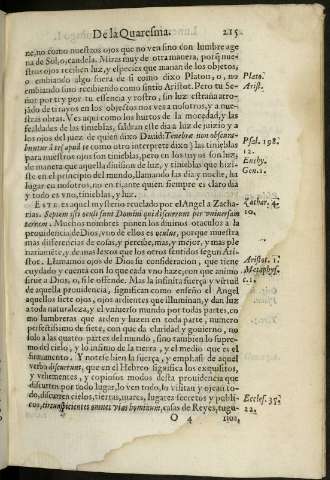 De la Quaresma. 215
ne, no como nuestros ojos que no ven sino con lumbre age
na de Sol, o, candela. Miras muy de otra manera, porq̃ nues
tros ojos reciben luz, y especies que manan de los objetos,
o embiando algo fuera de si como dixo Platon: o, no
embiando sino recibiendo como sintio Aristot. Pero tu Se
ñor por ti y por tu essencia y rostro, sin luz estraña arro-
jado de tu rayos en los objetos nos vees a nosotros, y a nues-
tras obras. Ves aqui como los hurtos de la mocedad, y las
fealdades de las tinieblas, saldran este dia a luz de juizio y a
los ojos del juez de quien dixo Dauid: Tenebræ non obscura-
buntur à te (apud te como otro interprete dixo) las tinieblas
para nuestros ojos son tinieblas, pero en los tuyos son luz,
de maneta que aquella distinsion de luz, y tinieblas que hizis
te en el principio del mundo, llamando las dia y noche, ha
lugar en nosotros, no en ti ante quien siempre es claro dia
y todo es vno, tinieblas, y luz.
ESTE es aquel mysterio reuelado por el Angel a Zacha-
rias. Septem isti oculi sunt Domini qui discurrunt per vniuersam
terram. Muchos nombres ponen los diuinos oraculos a la
prouidencia de Dios, vno de ellos es oculus, porque nuestra
mas diferencias de cosas, y percibe, mas, y mejor, y mas ple
nariamẽte, y de mas lexos que los otros sentidos segun Aris-
tot. Llamamos ojos de Dios su consideracion, que tiene
cuydado y cuenta con lo que cada vno haze, con que animo
sirue a Dios, o, si le ofende. Mas la infinita fuerça y virtud
de aquella prouidencia, significan como enseño el Angel
aquellos siete ojos, ojos ardientes que illuminan, y dan luz
a toda naturaleza, y el vniuerso mundo por todas partes, co
mo lumbreras que arden y luzen en toda parte, numero
perfectissimo de siete, con que da claridad y gouierno, no
solo a las quatro partes del mundo, sino tambien lo supre-
mo del cielo, y lo infimo de la tierra, y el medio que es el
firmamento. Y notese bien la fuerça, y emphasi de aquel
verbo discurrunt, que en el Hebreo significa los exquisitos,
y vehementes, y copiosos modos desta prouidencia que
discurren por todo lugar, lo ven todo, lo visitan y ojean to-
do, discurren cielos, tierras, mares, lugares secretos y publi-
cos, circunspicientes omnes vias hominum, casas de Reyes, tugu-
O 4
Plato.
Arist.
Psal. 198.
12.
Euthy.
Gen. 1.
Zachar. 4.
10.
Aristot. 1.
Metaphys.
c. 1.
Eccles. 35.
22.